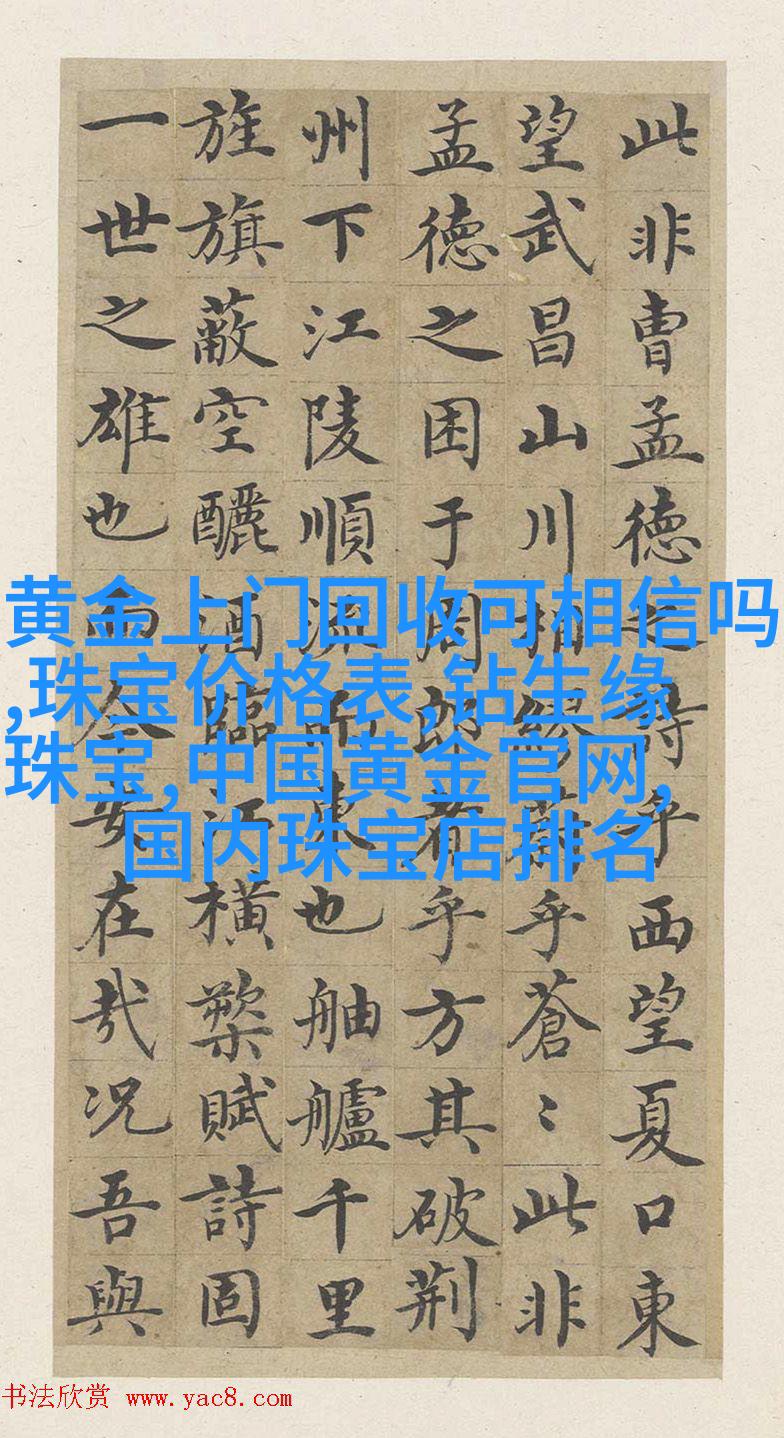 此非曹孟德之詩乎西望夏口東
望武昌山川相繆乎蒼〻此非
孟德之困于周郎者乎方其破荆
州下江陵順流而東也舳艫千里
旌旗蔽空釃酒臨江横槊賦詩固
一世之雄也而今安在哉况吾與
黄金上门回收可相信吗
,珠宝价格表,钻生缘
珠宝,中国黄金官网,
国内珠宝店排名
书法欣赏 www.yac8.com